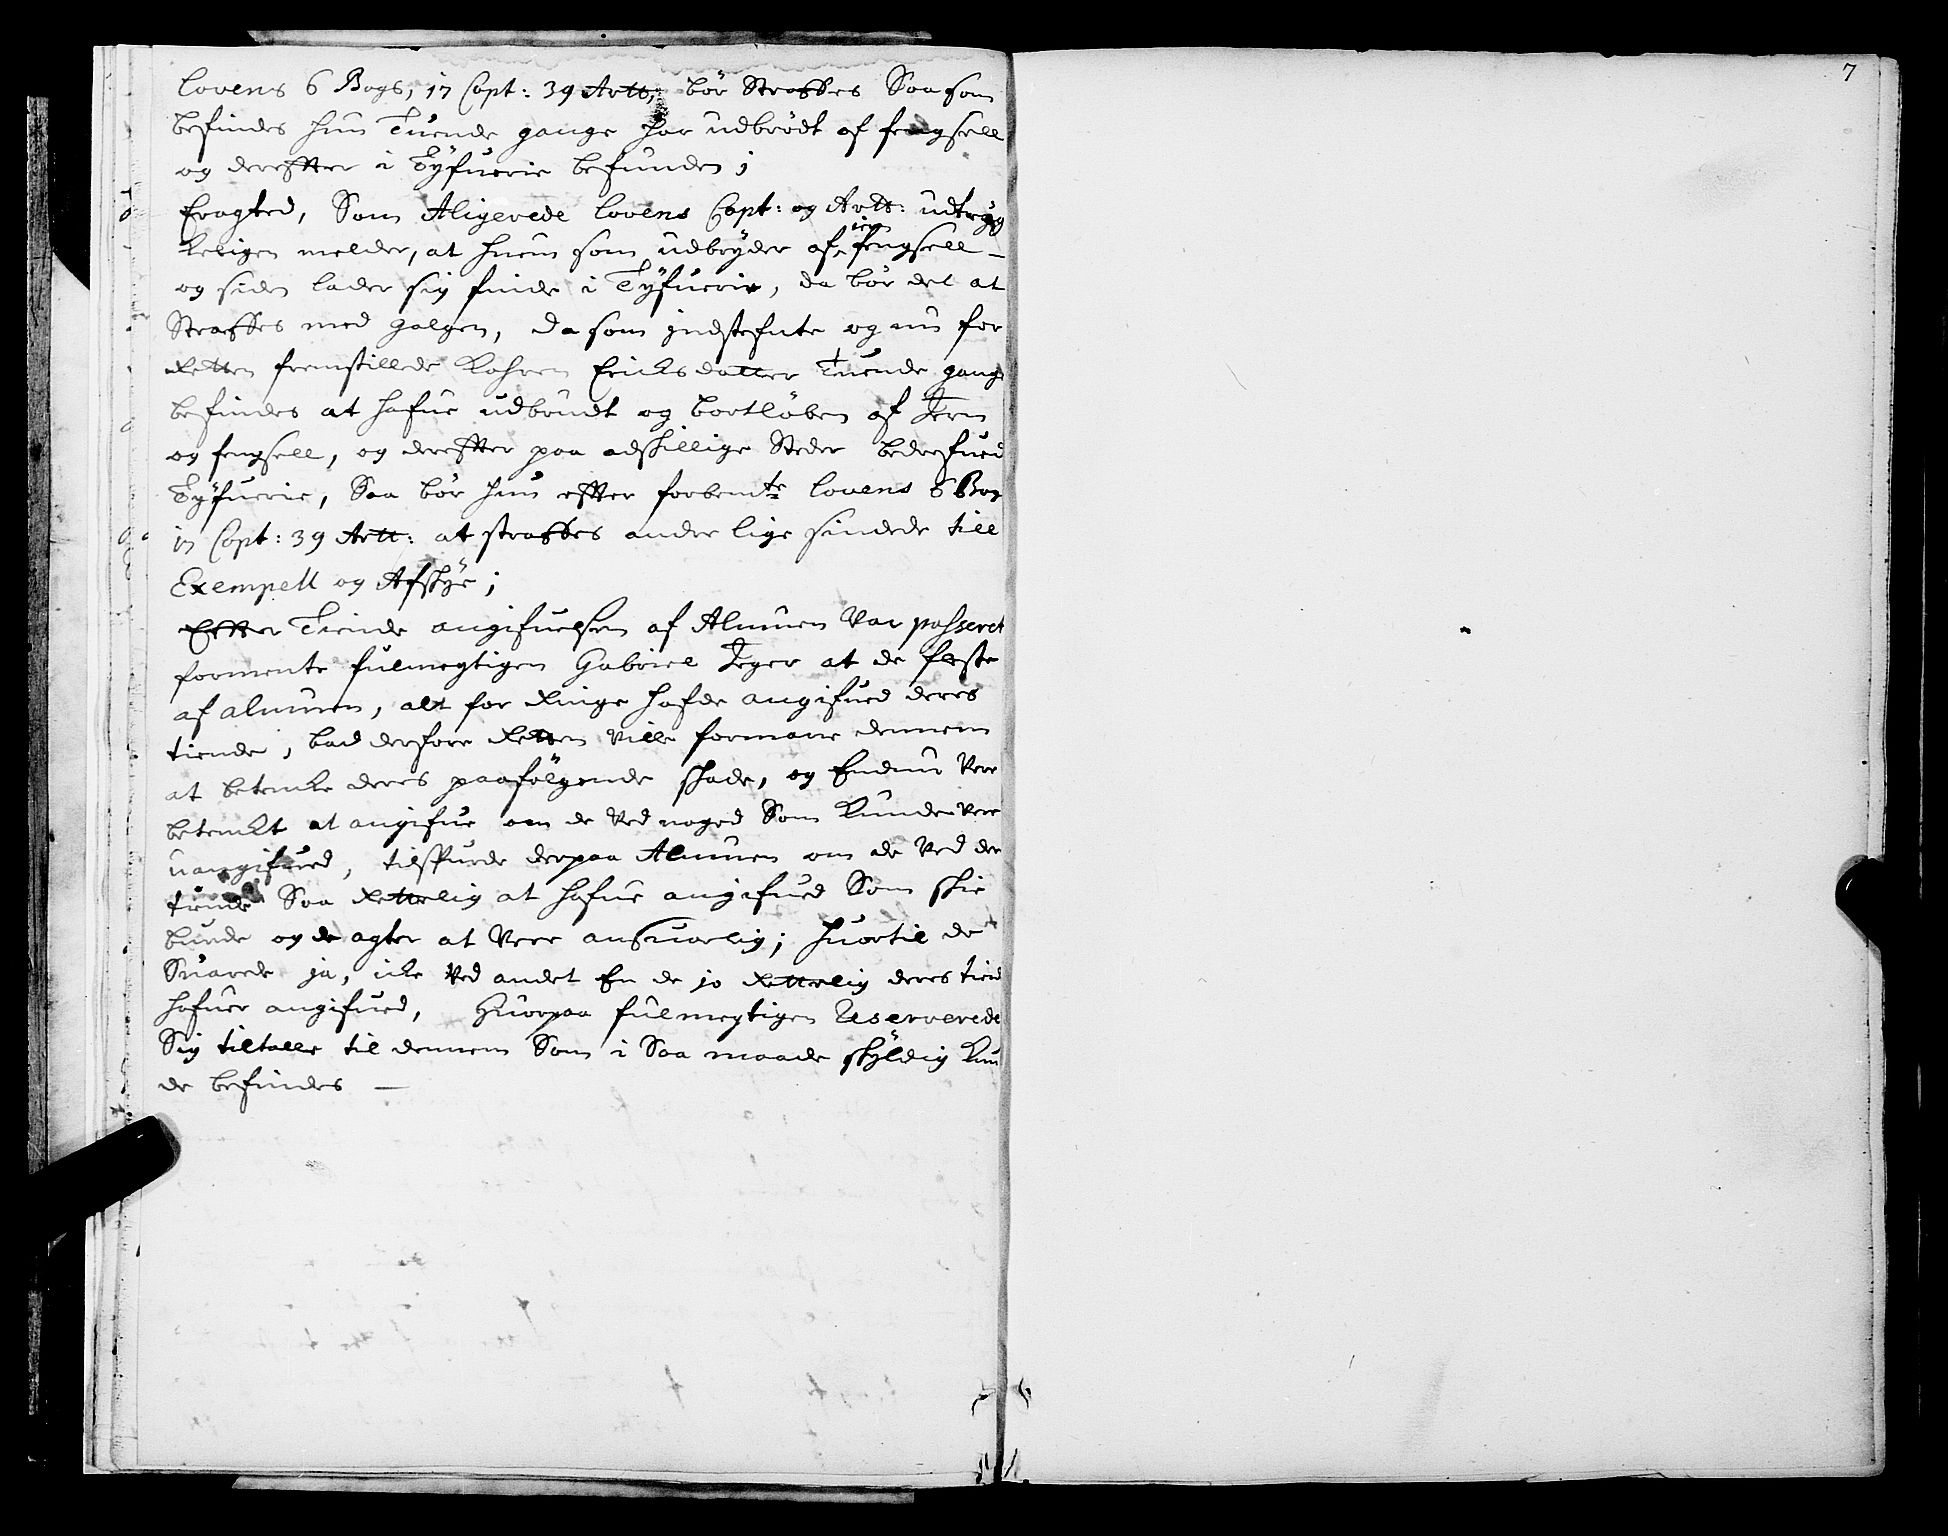 lovens 6 Bogs, 17 Capt: 39 Artt, bör Straffes Saa som
befindes hun Tuende gange har udbrödt af fengsell
og derefter i Tÿfuerie befunden;
Eragted, Som Aligerede lovens Capt: og Artt: udtryg
keligen melder, at huem som udbryder af fengsell
og siden lader sig finde i Tÿfuerie, da bör det at
Straffes med galgen, da som indstefnte og nu for
Retten fremstillede Kahren Ericksdatter Tuende gang
befindes at hafue udbrudt og bortlöben af Jern
og fengsell, og derefter paa adskillige Steder bedrefued
Tÿfuerie, Saa bör hun effter forbemte lovens 6 Bog
17 Capt: 39 Artt: at straffes andre lige sindede till
Exempell og Afskÿe;
Effter Tiende angifuelsen af Almuen Var passeret
formente fulmegtigen Gabriel Jeger at de fleste
af almuen, alt for Ringe hafde angifued deres
tiende, bad derfore Retten ville formane dennem
at betenke deres paafölgende skade, og Endnu Vere
betenkt at angifue om de Ved noged Som Kunde Vere
uangifued, tilspurde derpaa Almuen om de Ved der
tiende Saa Retterlig at hafue angifued Som skie
burde og de agter at Vere ansuarlig; huortil de
Suarede ja, icke Ved andet En de jo Retterlig deres tiend
hafuer angifued, Huorpaa fulmegtigen Reserverede
Sig tiltalle til dennem Som i Saa maade skÿldig Kun
de befindes —
7